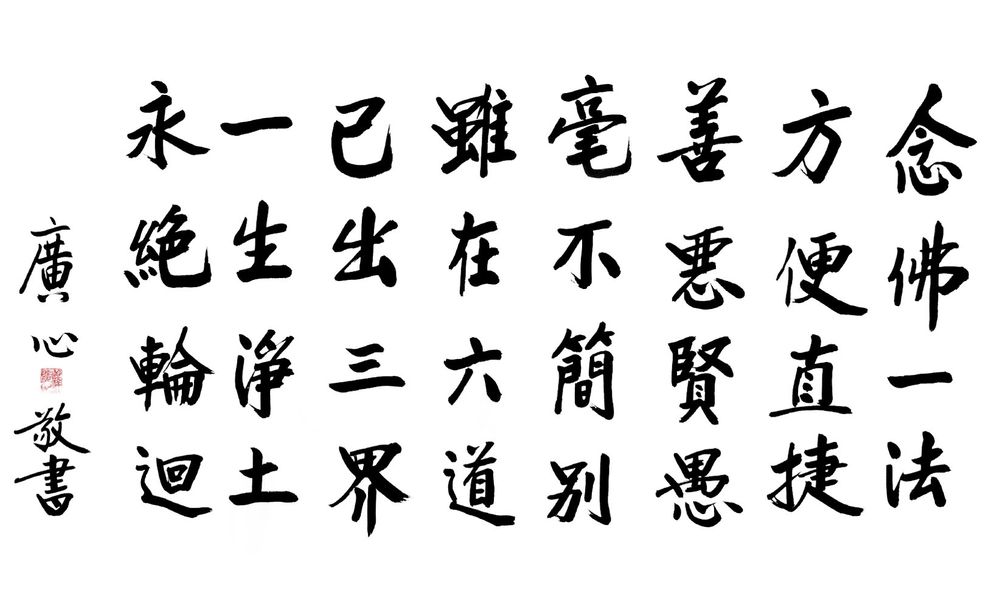 念佛一法
方便直捷
善惡賢愚
毫不簡別
雖在六道
已出三界
一生淨土
永絕輪迴
廣心敬書